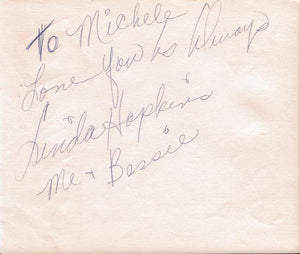 To Michele
Love You As Always
Linda Hopkins
Me + Bessie